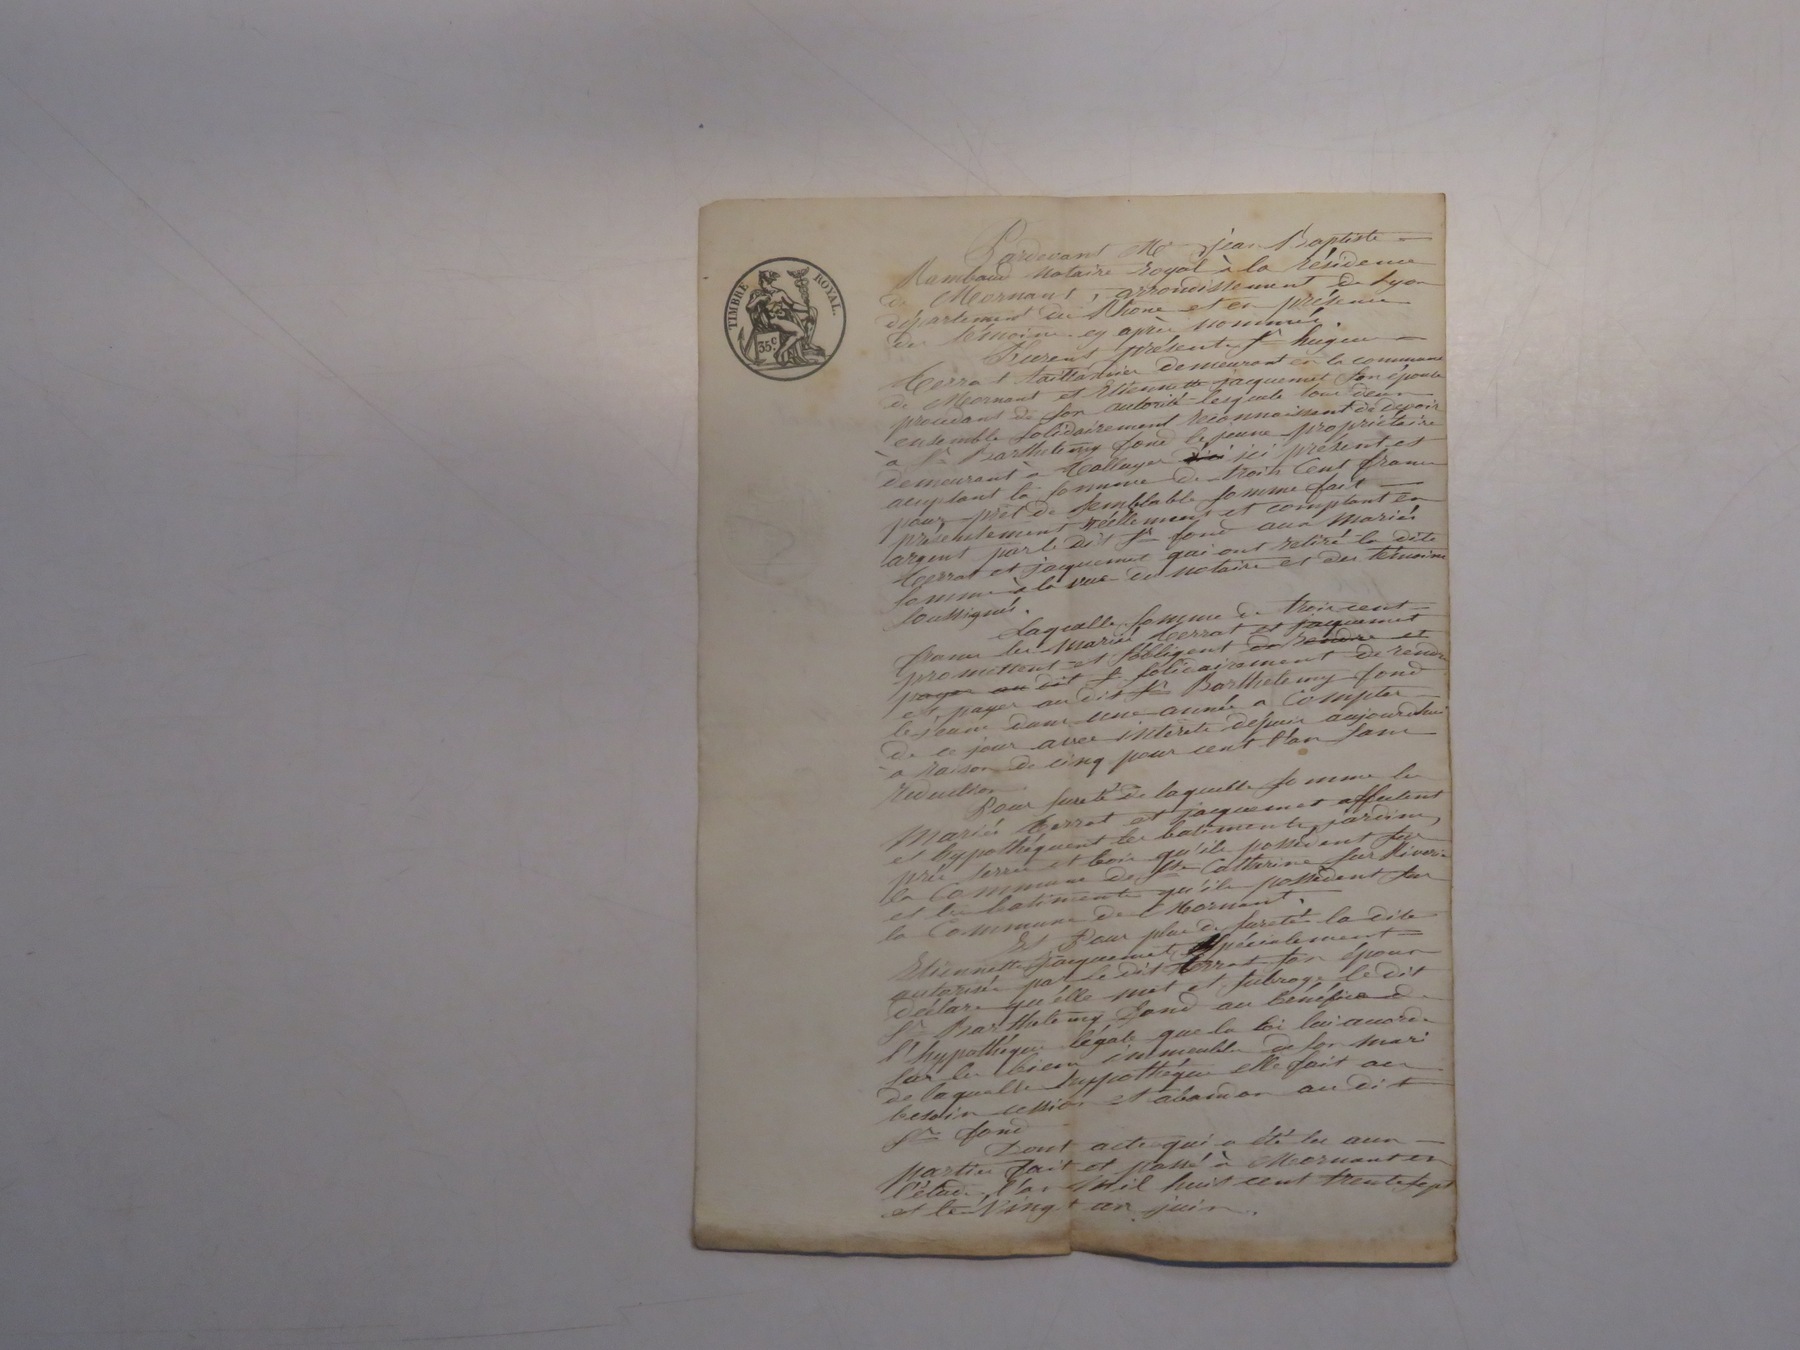 TIMBRE ROYAL.
35 c.
Pardevant Me jean Baptiste
Rambaud notaire royal à la résidence
de Mornant, arrondissement de Lyon
département du Rhone et en présence
de témoins cy après nommés.
Furent présents Sr hugue
Terrat taillandier demeurant en la commune
de Mornant et Etiennette jacquemet son épouse
procedant de son autorité lesquels tous deux
ensemble solidairement reconnaissent de devoir
à Sr Barthelemy fond le jeune propriétaire
demeurant à ici présent et
acceptant la somme de trois cent francs
pour prêt de semblable somme fait
présentement réellement et comptant en
argent par le dit Sr fond aux mariés
Terrat et jacquemet qui ont retiré la dite
somme à la vue du notaire et des témoins
soussignés.
Laquelle somme de trois cent
francs les mariés Terrat et jacquemet
promettent et s'obligent de rendre et
payer au dit S. solidairement de rendre
et payer au dit Sr Barthelemy fond
le jeune dans une année a compter
de ce jour avec intérêts depuis aujourdhui
a raison de cinq pour cent l'an sans
reduction.
Pour sureté de laquelle somme les
mariés Terrat et jacquemet affectent
et hypothéquent les batiments, jardins,
prés terres et bois qu'ils possèdent sur
la Commune de Ste Catherine sur Riverie
et les batiments qu'ils possèdent sur
la Commune de Mornant.
Et Pour plus de sureté la dite
Etiennette Jacquemet spécialement
autorisée par le dit Terrat son époux
déclare qu'elle met et subroge le dit
Sr Barthelemy fond au bénéfice de
l'hypothéque légale que la loi lui accorde
sur les biens immeubles de son mari
de laquelle hyppothéque elle fait au
besoin cession et abandon au dit
Sr fond
Dont acte qui a été lu aux
parties fait et passé à Mornant en
l'étude, l'an mil huit cent trente sept
et le vingt un juin.